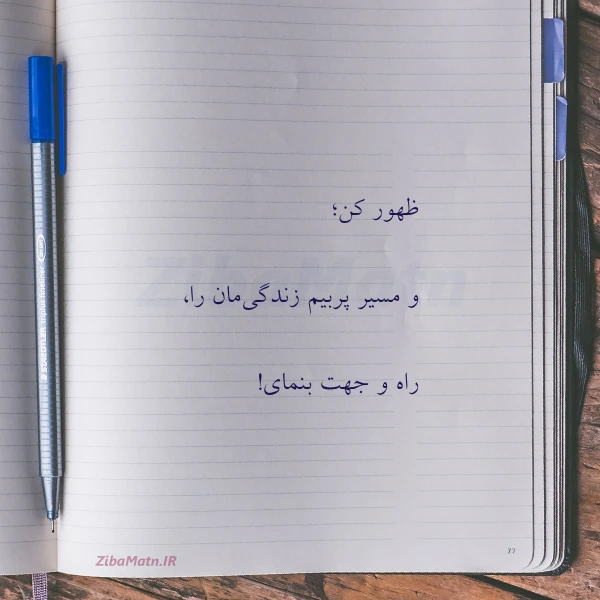 ظهور کن؛
و مسیر پربیم زندگی‌مان را،
راه و جهت بنمای!
ZibaMatn
ZibaMatn.IR
77